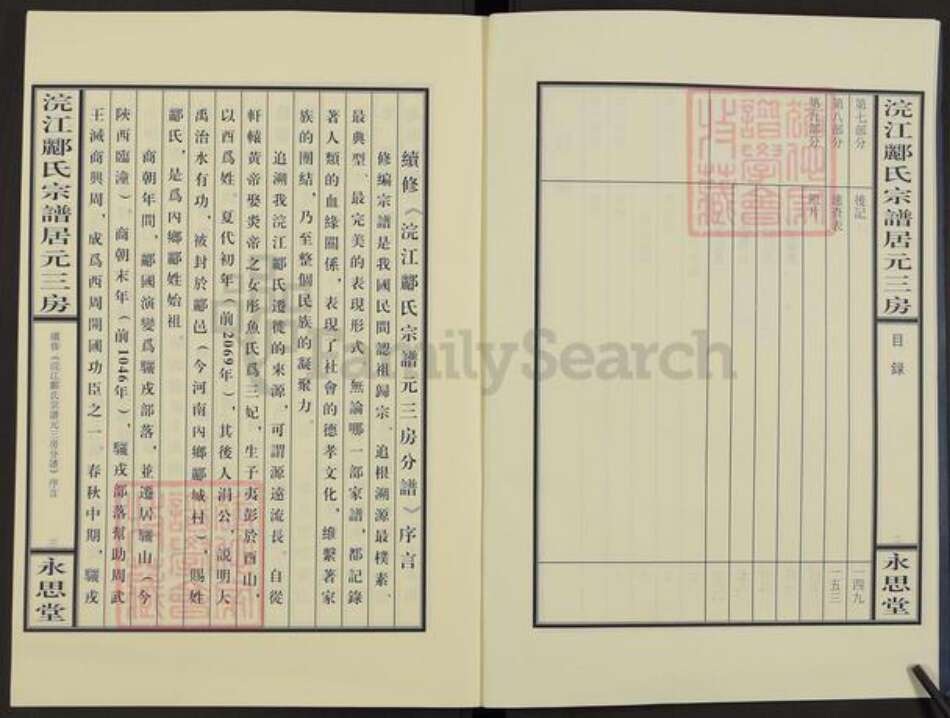 浣江酈氏宗譜居元三房
目錄
永思堂
第七部分 後記 一四九
第八部分 速查表 一五三
第九部分 照片
續修《浣江酈氏宗譜元三房分譜》序言
修編宗譜是我國民間認祖歸宗、追根溯源最樸素、
最典型、最完美的表現形式。無論哪一部家譜，都記錄
著人類的血緣關係，表現了社會的德孝文化，維繫著家
族的團結，乃至整個民族的凝聚力。
追溯我浣江酈氏遷徙的來源，可謂源遠流長。自從
軒轅黃帝娶炎帝之女彤魚氏爲三妃，生子夷彭於酉山，
以酉爲姓。夏代初年（前2069年），其後人涓公，說明大
禹治水有功，被封於酈邑（今河南內鄉酈城村），賜姓
酈氏，是爲內鄉酈姓始祖。
商朝年間，酈國演變爲驪戎部落，並遷居驪山（今
陝西臨潼）。商朝末年（前1046年），驪戎部落幫助周武
王滅商興周，成爲西周開國功臣之一。春秋中期，驪戎
浣江酈氏宗譜居元三房
續修《浣江酈氏宗譜元三房分譜》序言
永思堂
FamilySearch